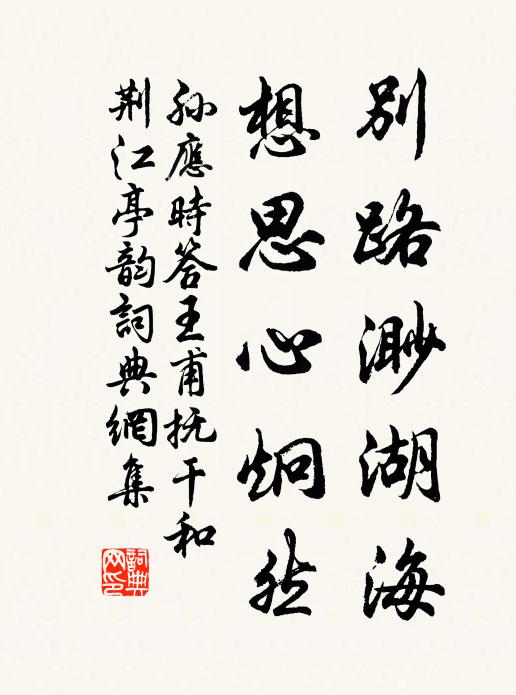 別路渺湖海
想思心炯然
孙應時答王甫抚干和
荆江亭韵詞典網集
詞典网印